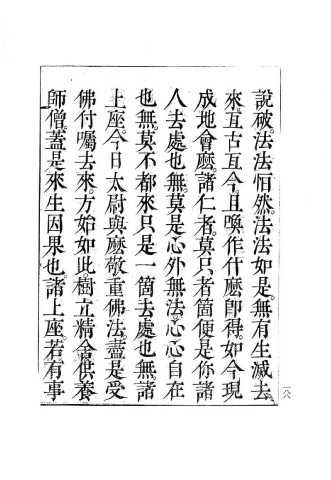 說破。法法怕然。法法如是。無有生滅去
來。亙古亙今。且喚作什麽卽得。如今現
成地會麽。諸仁者。莫只者箇便是你諸
人去處也無。莫是心外無法。心心自在
也無。莫不都來只是一箇去處也無。諸
上座。今日太尉與麽敬重佛法。蓋是受
佛付囑去來。方始如此樹立精舍。供養
師僧。蓋是來生因果也。諸上座。若有事
一八八